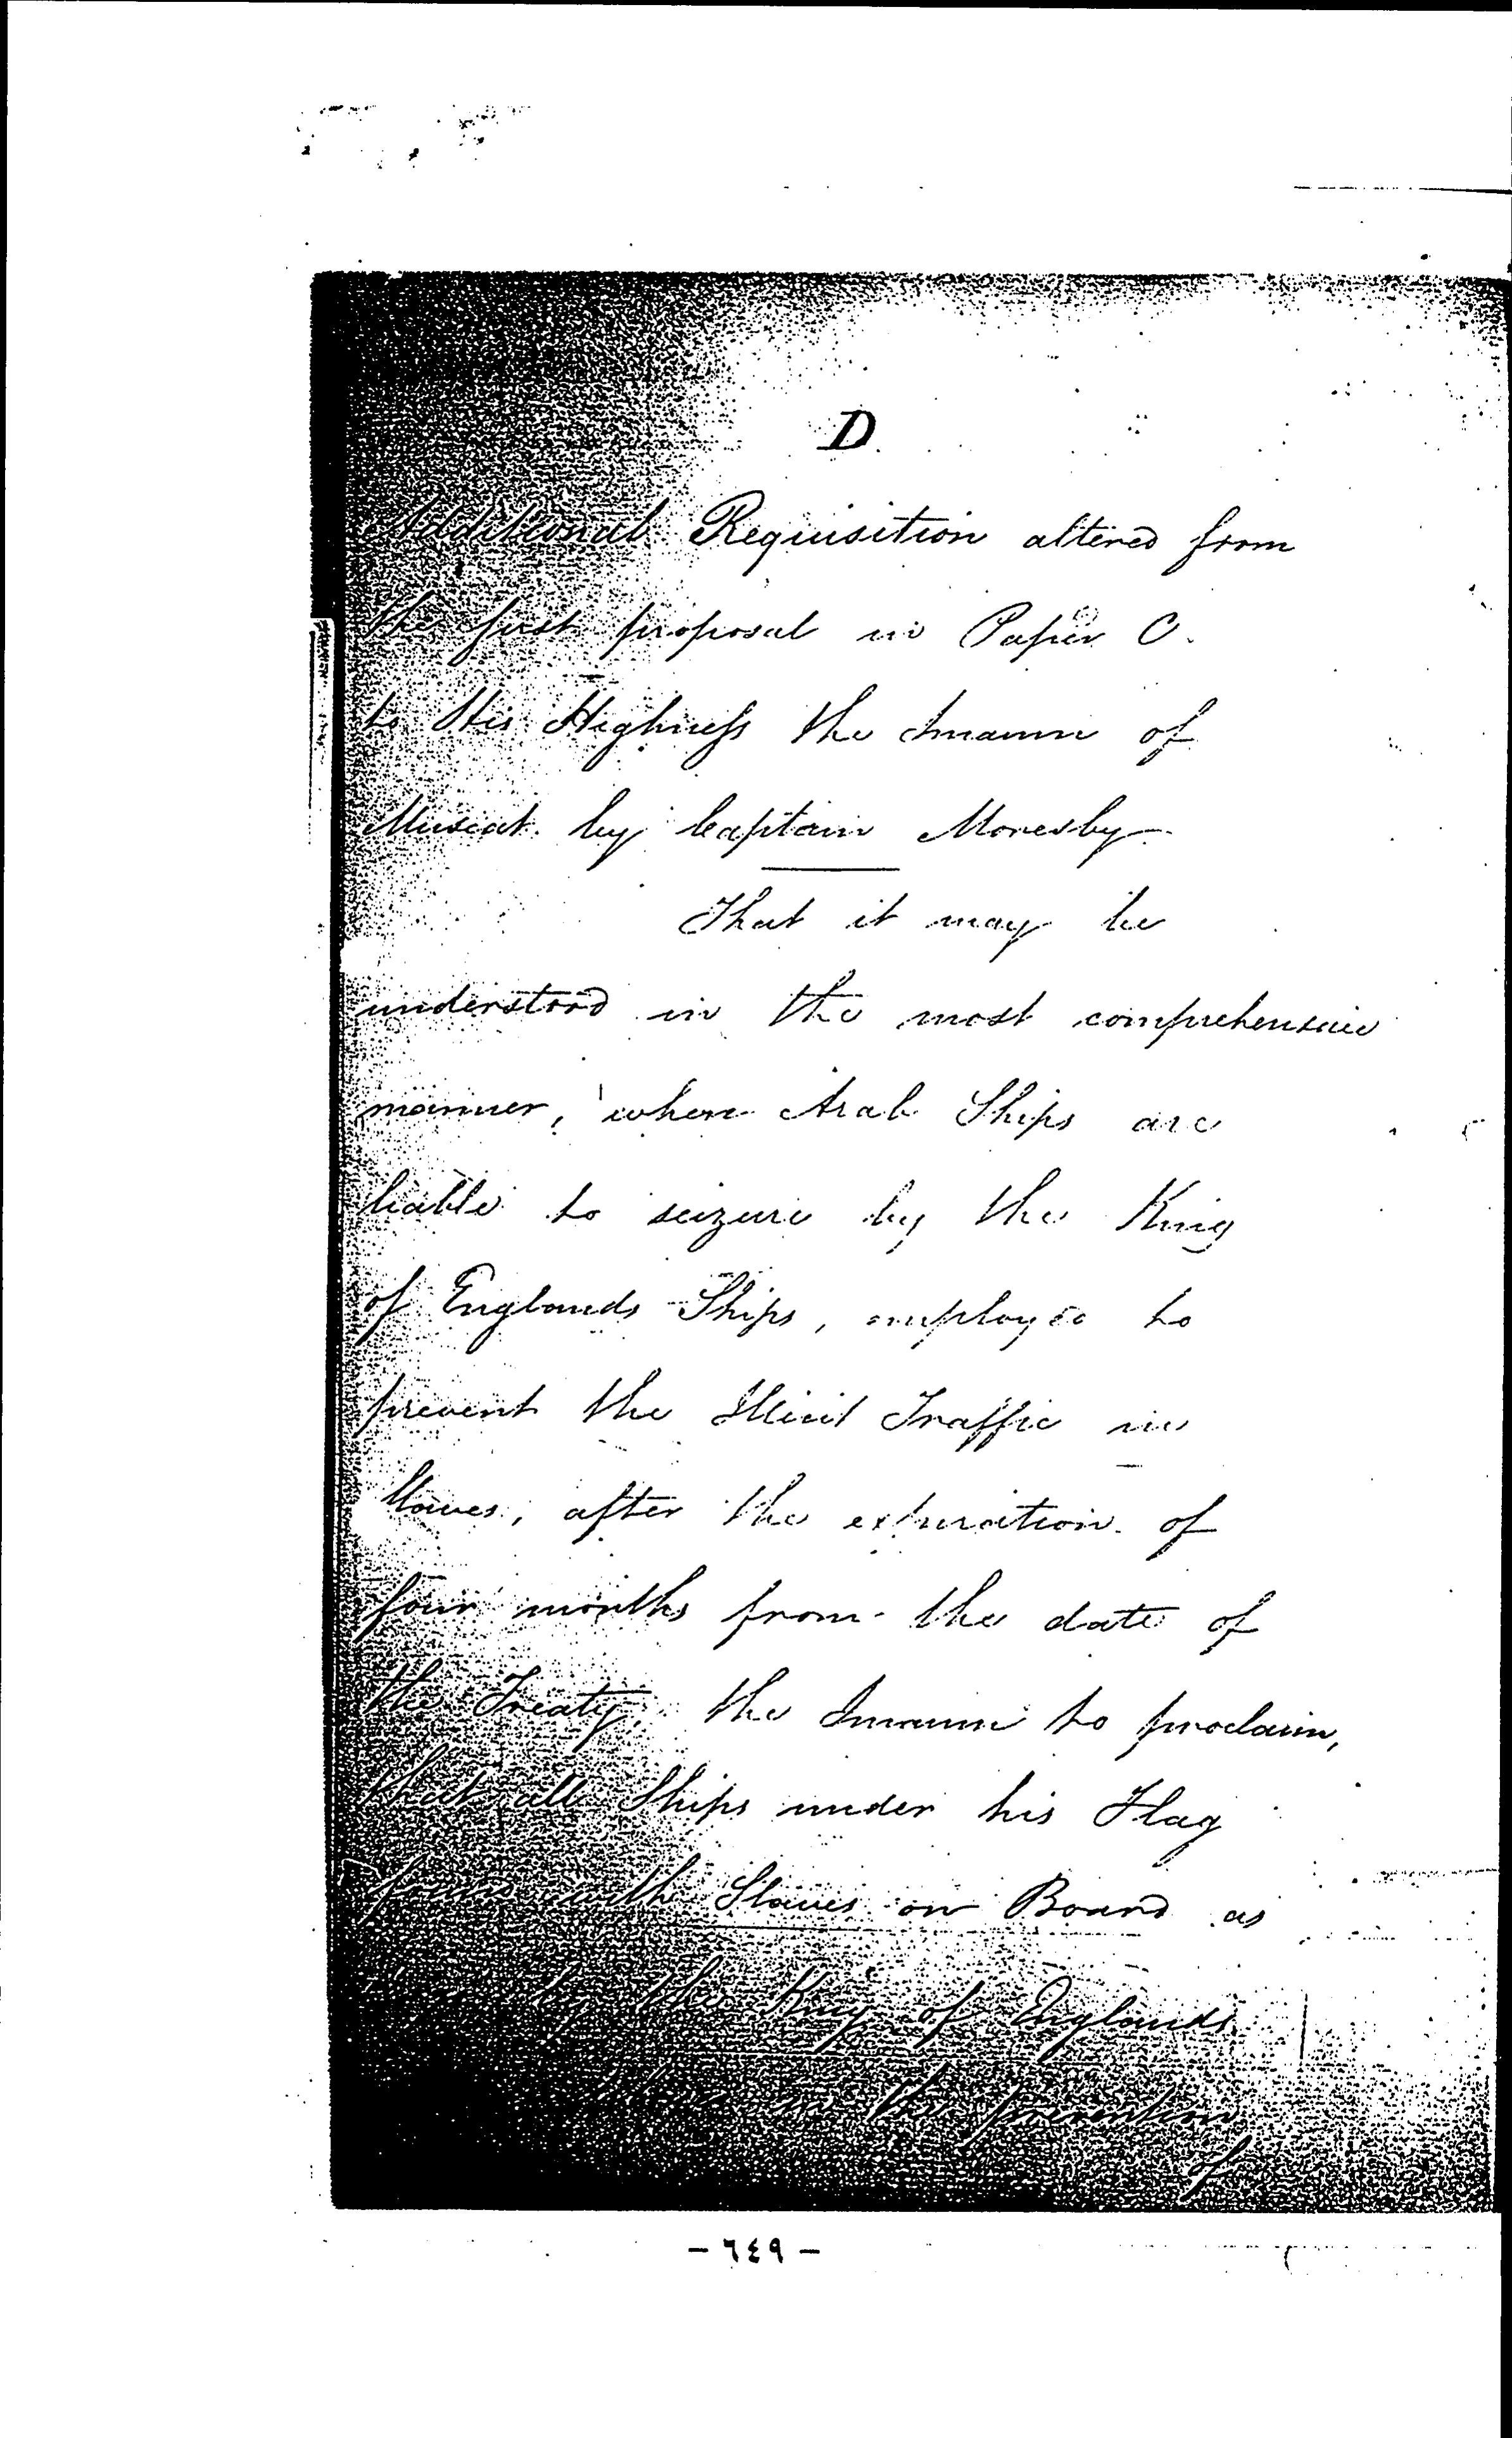 D.
Additional Requisition altered from
the first proposal in Paper C.
to His Highness the Imaum of
Muscat by Captain Moresby
That it may be
understood in the most comprehensive
manner, where Arab Ships are
liable to seizure by the King
of Englands Ships, employed to
prevent the Illicit Traffic in
Slaves, after the expiration of
four months from the date of
the Treaty. the Imaum to proclaim,
that all Ships under his Flag
found with Slaves on Board as
by the King of Englands
in the prevention
of
- ٦٤٩ -